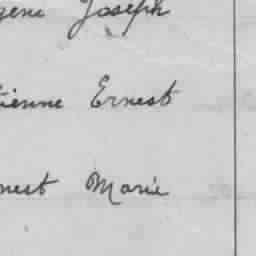 gene Joseph
tienne Ernest
nest Marie